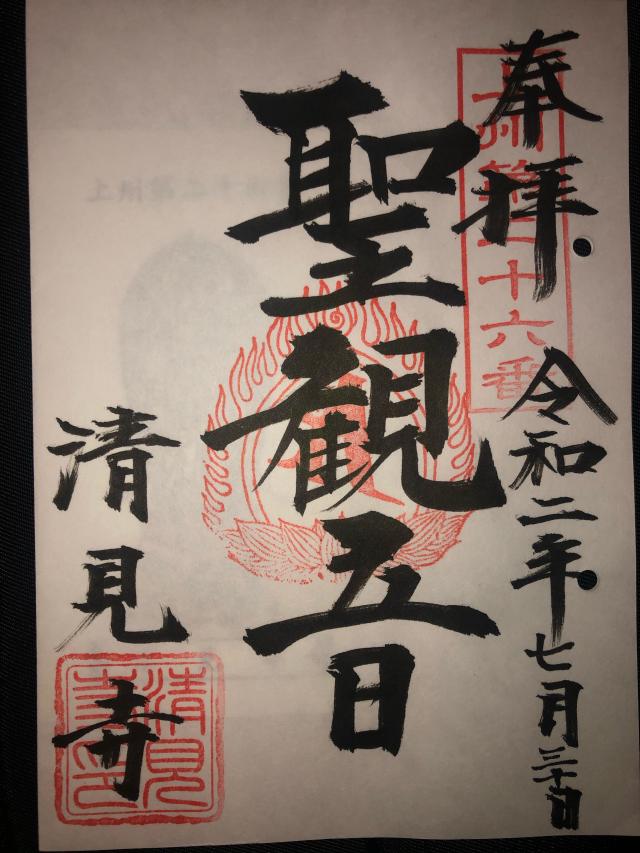 奉拝
令和二年七月三十日
上州第二十六番
聖観音
清見寺
清見
寺印